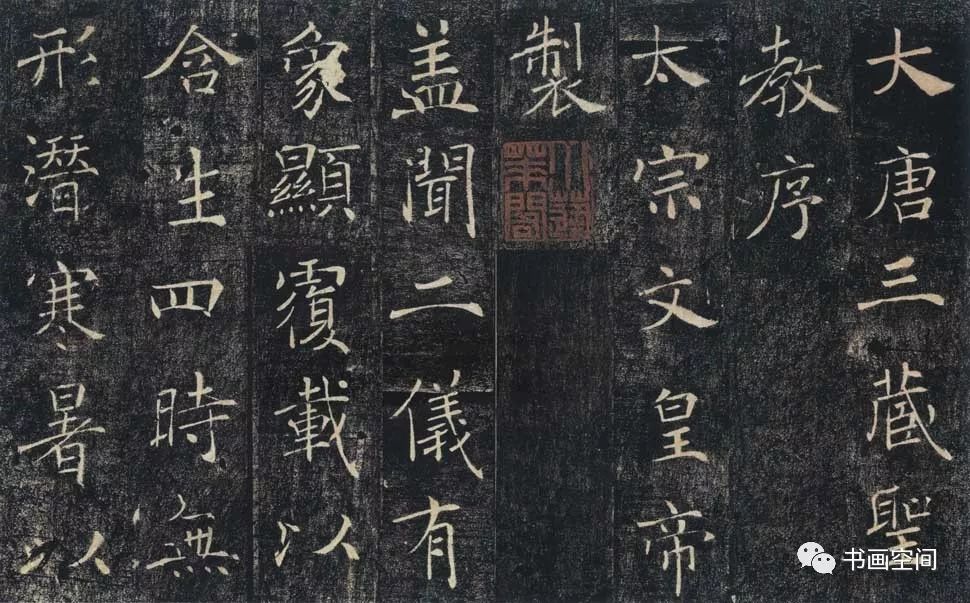 大唐三藏聖
教序
太宗文皇帝
製
蓋聞二儀有
象顯覆載以
含生四時無
形潛寒暑以
书画空间